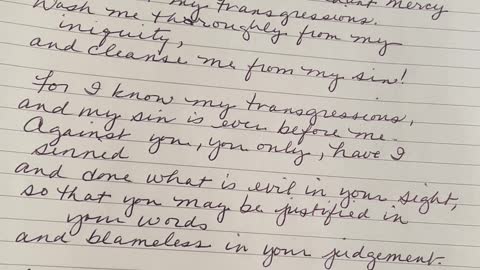 my transgressions.
mercy
Wash me thoroughly from my
iniquity,
and cleanse me from my sin!
For I know my transgressions,
and my sin is ever before me.
Against you, you only, have I
sinned
and done what is evil in your sight,
so that you may be justified in
your words
and blameless in your judgement.